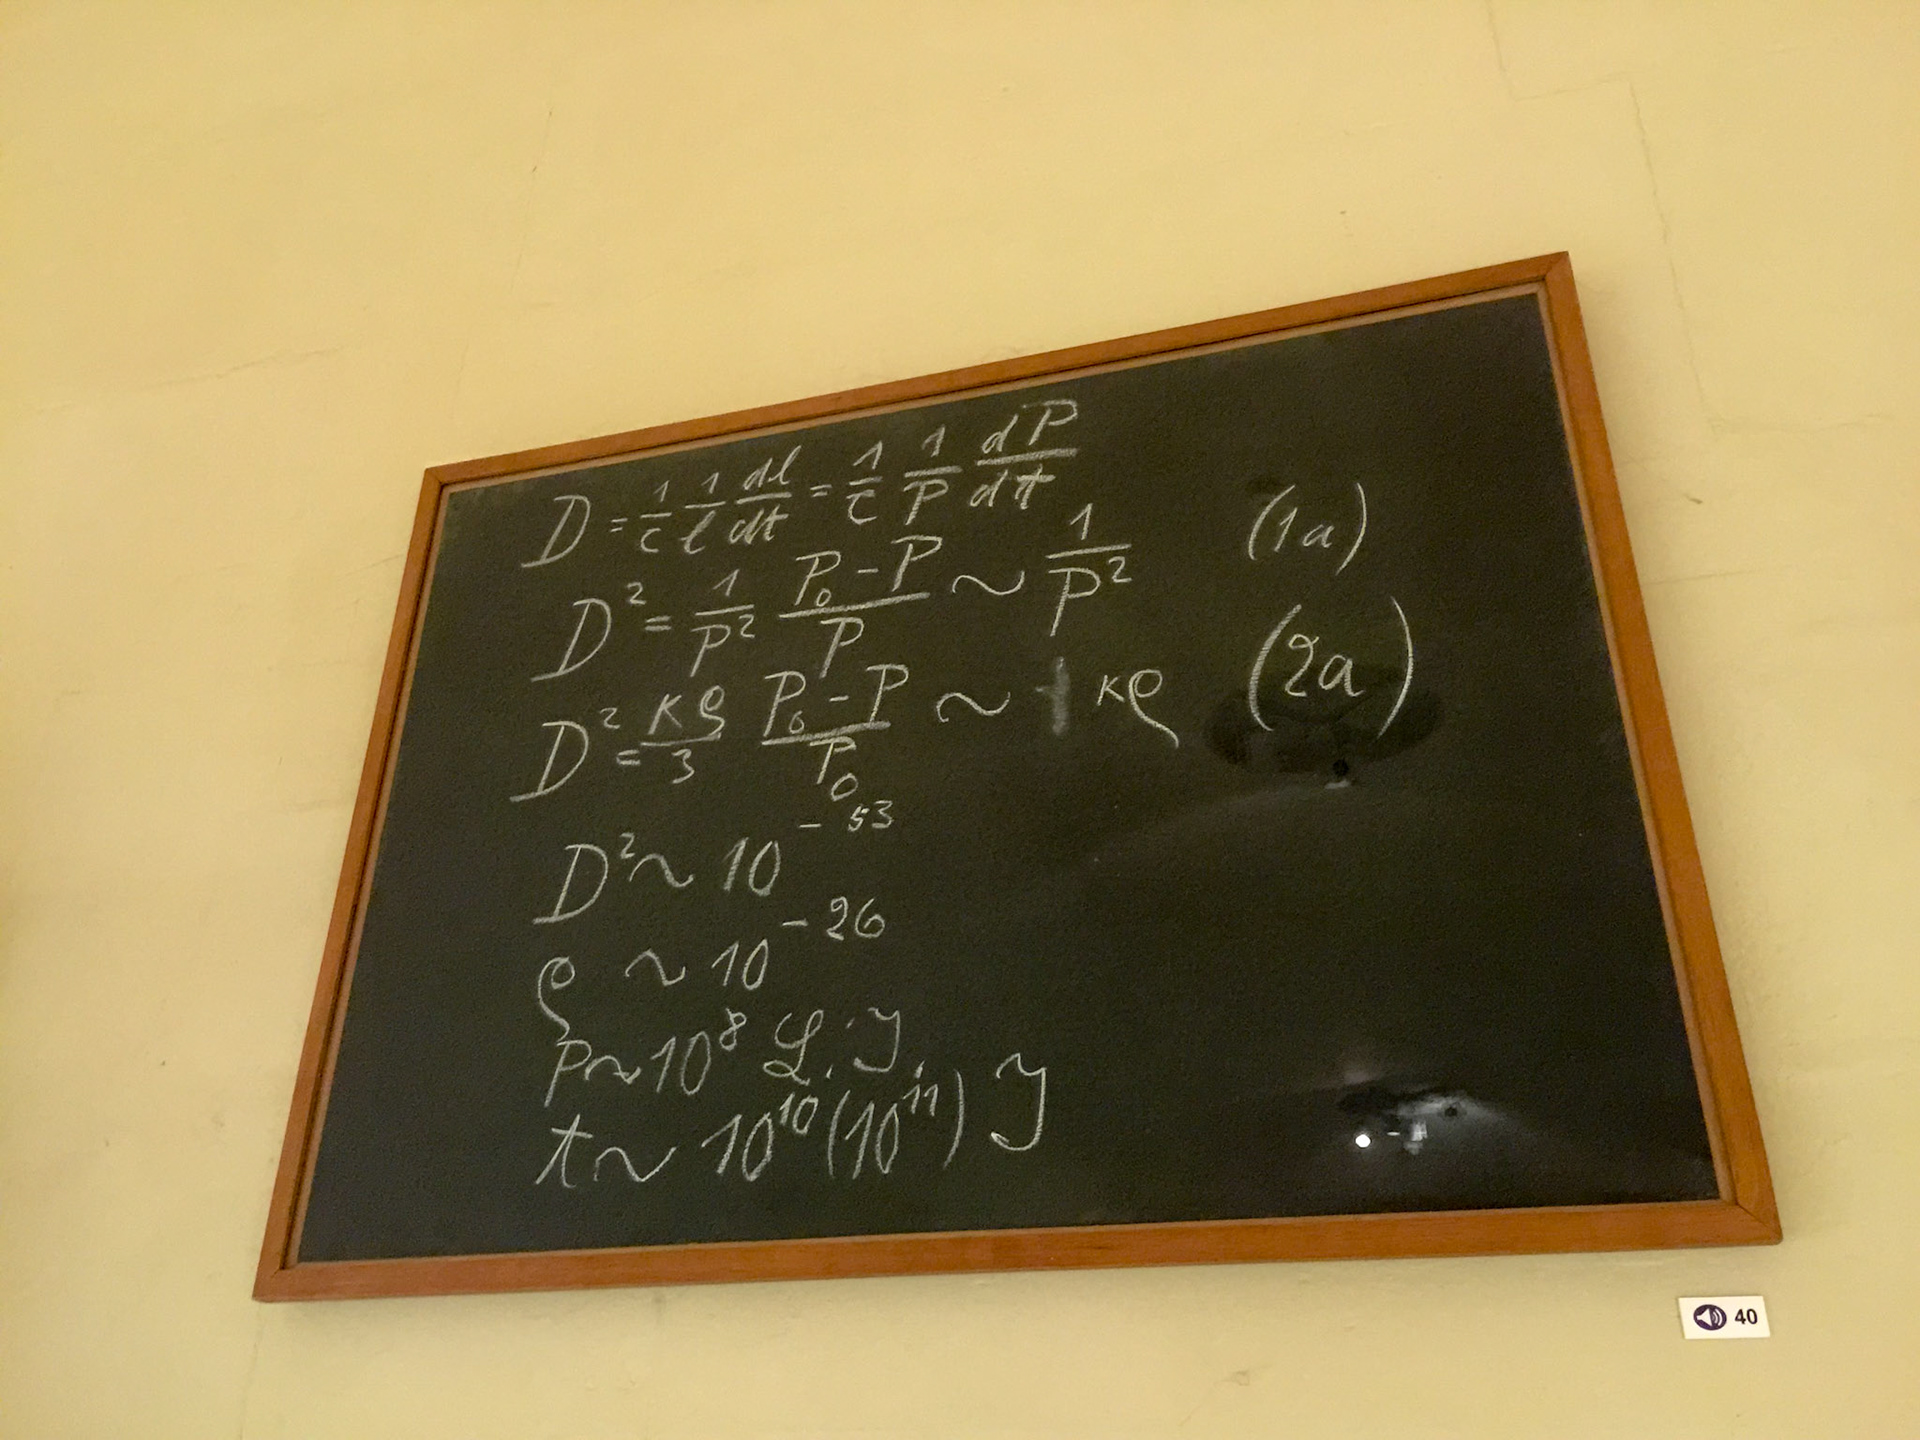 D = 1/c 1/l dl/dt = 1/c 1/P dP/dt
D² = 1/P² (P₀ - P)/P ~ 1/P² (1a)
D² = κρ/3 (P₀ - P)/P₀ ~ κρ (2a)
D² ~ 10⁻⁵³
ρ ~ 10⁻²⁶
P ~ 10⁸ L.J.
t ~ 10¹⁰(10¹¹) J
40